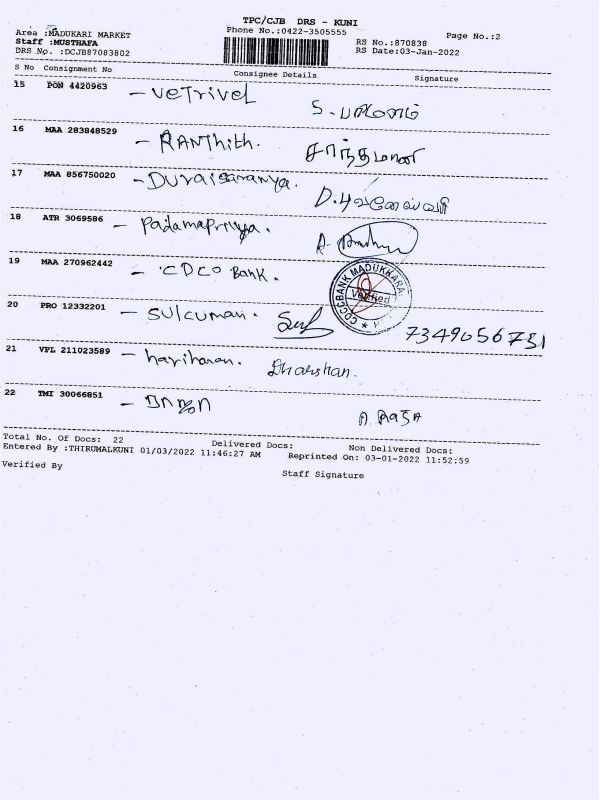 TPC/CJB DRS - KUNI
Area :MADUKARI MARKET
Phone No.:0422-3505555
Page No.:2
Staff :MUSTHAFA
RS No.:870838
DRS No. :DCJB87083802
RS Date:03-Jan-2022
S No Consignment No Consignee Details Signature
15 PON 4420963 - Vetrivel S.
16 MAA 283848529 - RANThith. சாந்தாமணி
17 MAA 856750020 - Duraisaranya. D.
18 ATR 3069586 - Padamapriya. A.
19 MAA 270962442 - CDCO Bank. CDCCBANK MADUKKARAI Verified
20 PRO 12332201 - Sulcuman. 7349056731
21 VPL 211023589 - hariharan. Dharshan.
22 TMI 30066851 - A. RAJA
Total No. Of Docs: 22 Delivered Docs: Non Delivered Docs:
Entered By :THIRUMALKUNI 01/03/2022 11:46:27 AM Reprinted On: 03-01-2022 11:52:59
Verified By
Staff Signature